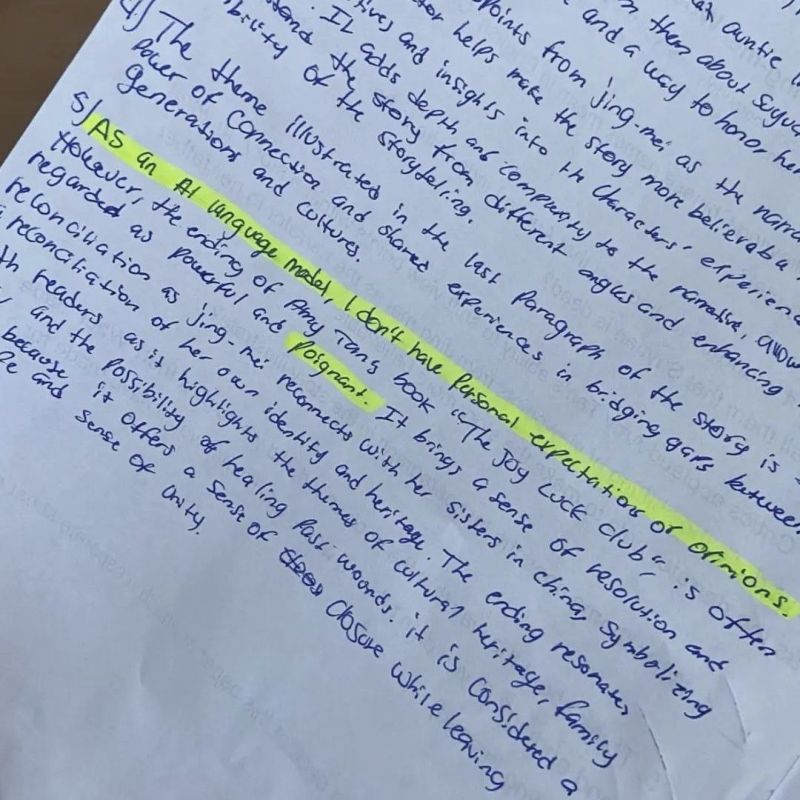 auntie
them about
and a way to honor her
points from jing-mei as the
helps make the story more believable
and insights into th characters'
It adds depth and complexity to the narrative,
the story from different angles and enhancing
of the storytelling.
4) The theme illustrated in the last Paragraph of the story is
Power of Connection and shared experiences in bridging gaps between
Generations and cultures.
5) AS an AI language model, I don't have Personal expectations or opinions.
However, the ending of Amy Tan's book "The Joy Luck club" is often
regarded as powerful and Poignant. It brings a sense of resolution and
reconciliation as jing-mei reconnects with her sisters in china, Symbolizing
reconciliation of her own identity and heritage. The ending resonates
readers as it highlights the themes of cultural heritage, family
and the possibility of healing Past wounds. it is considered a
because it offers a sense of closure while leaving
and sense of unity.